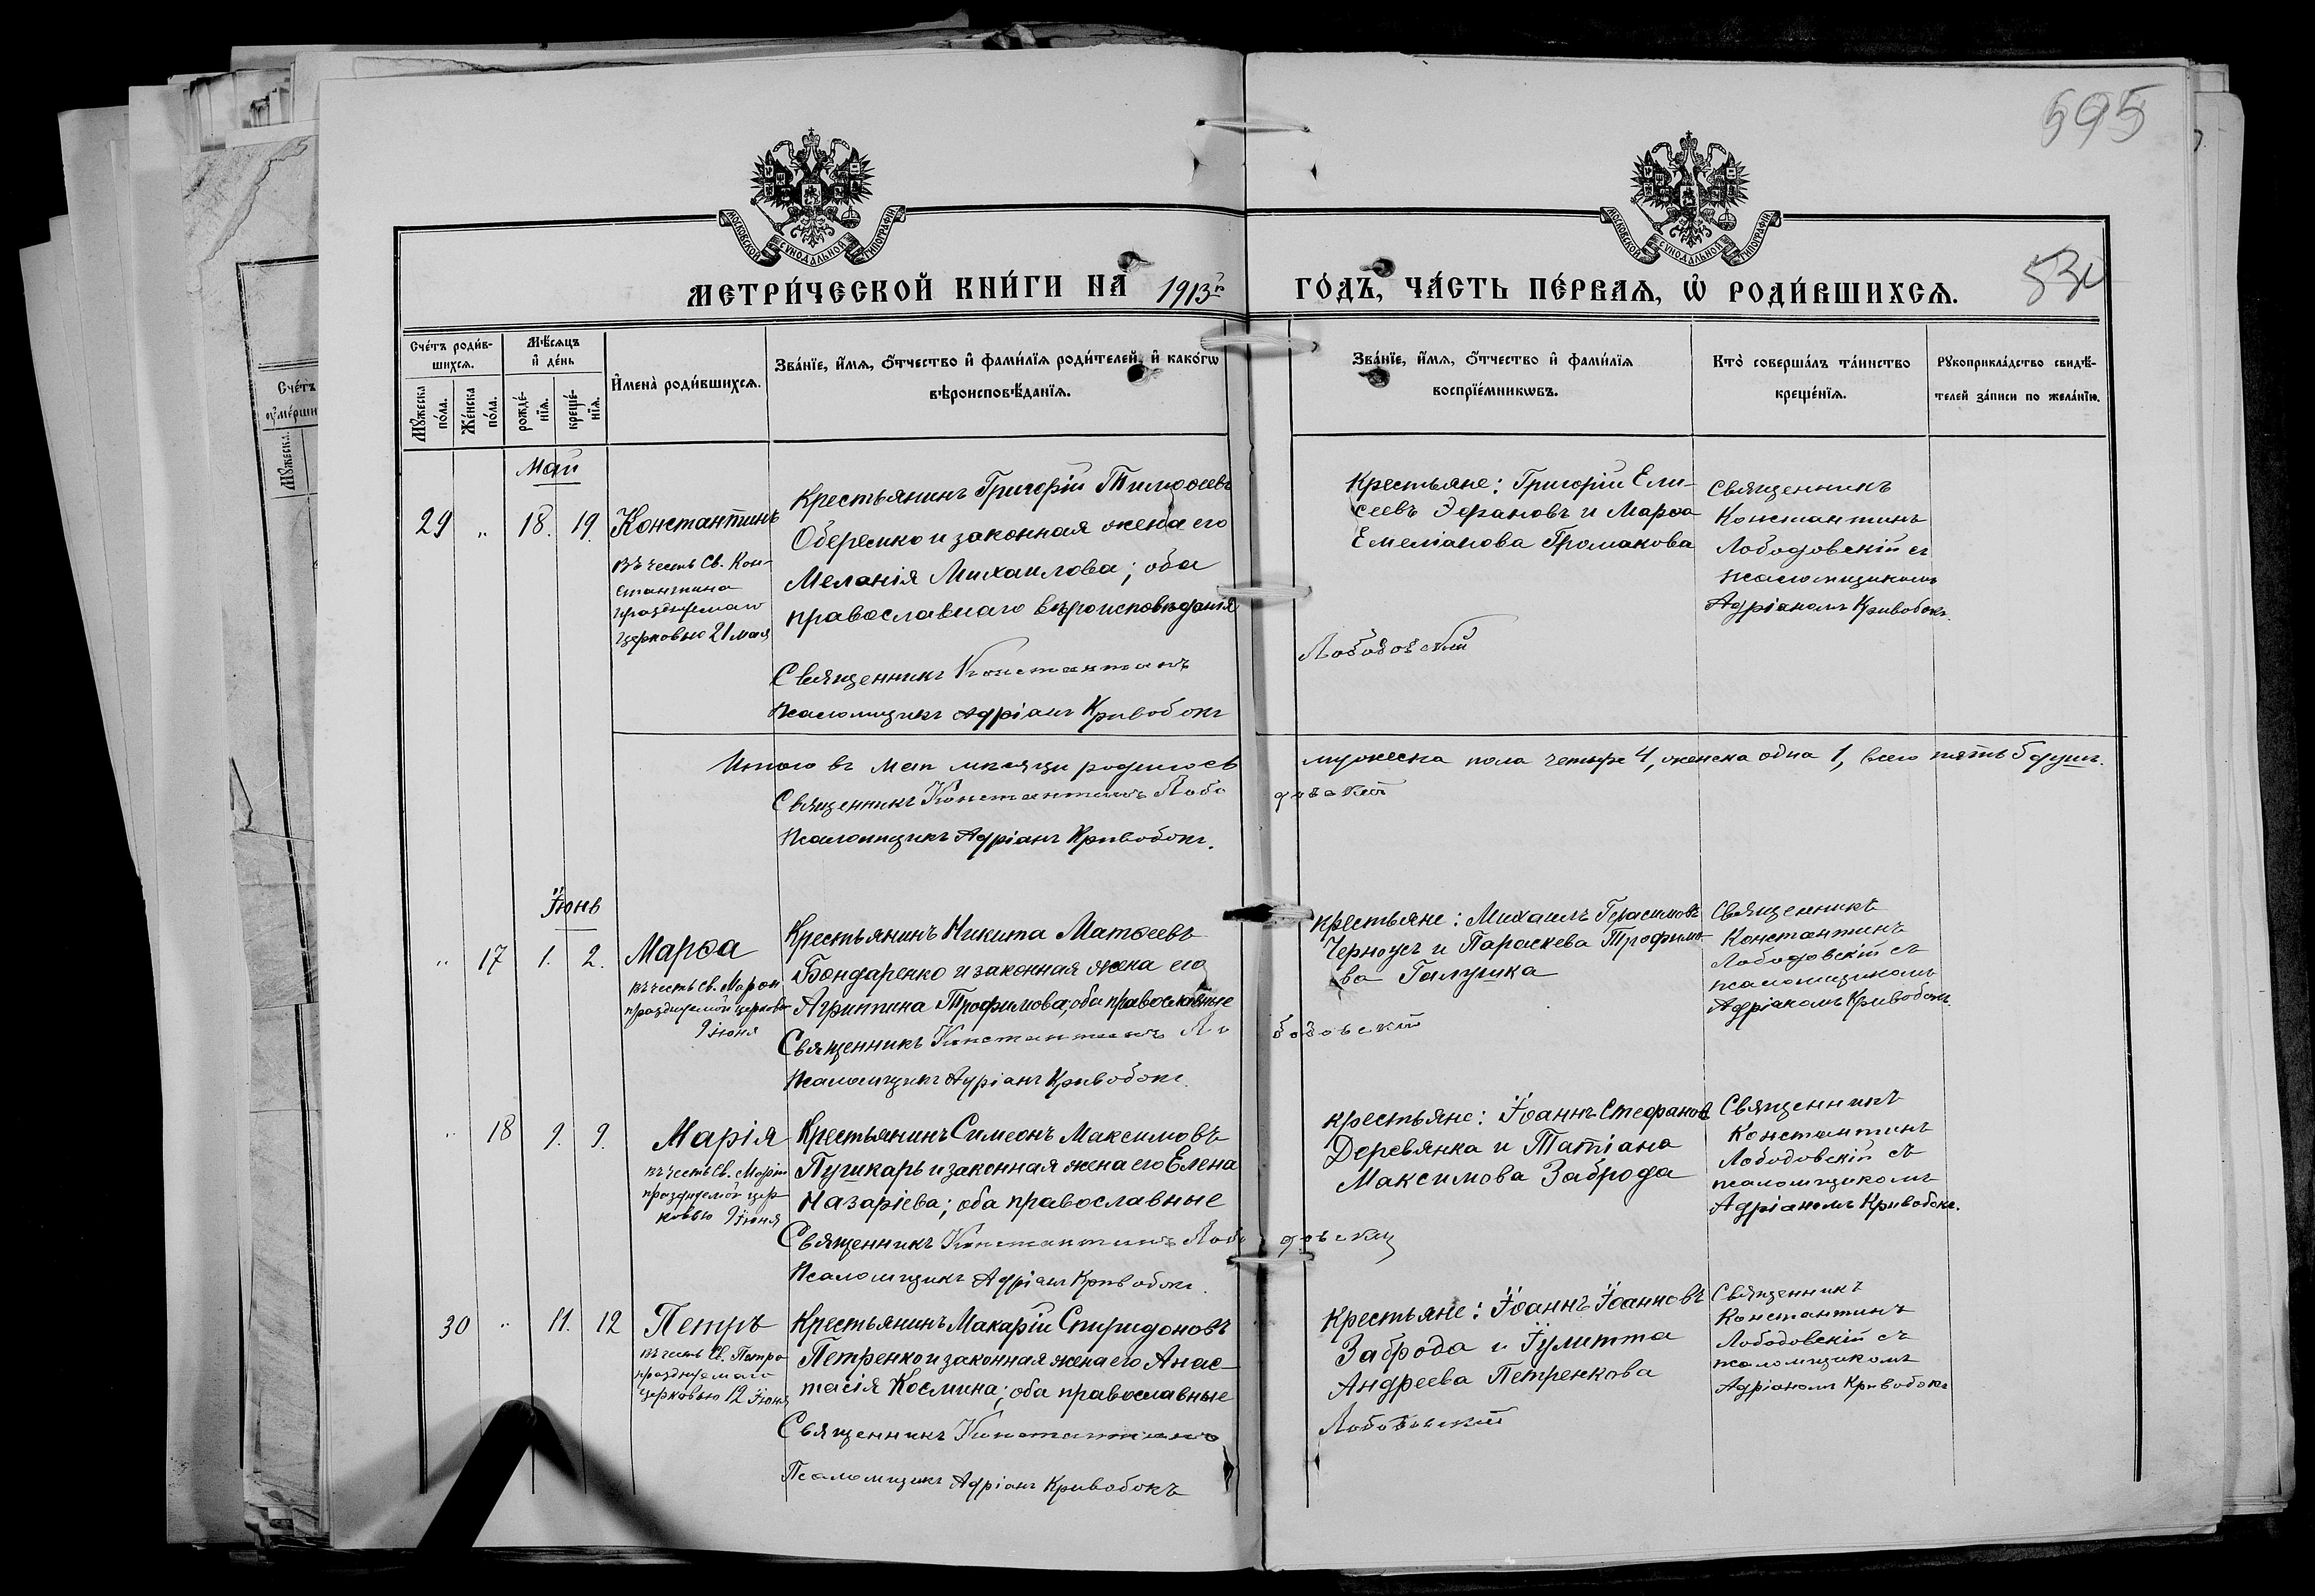 595
МОСКОВСКОЙ СѴНОДАЛЬНОЙ ТИПОГРАФІИ
МОСКОВСКОЙ СѴНОДАЛЬНОЙ ТИПОГРАФІИ
МЕТРИ́ЧЕСКОЙ КНИ́ГИ НА̀ 1913 г.
ГО́ДЪ, ЧА́СТЬ ПЕ́РВАѦ, Ѡ҆ РОДИ́ВШИХСѦ.
Сче́тъ роди́в-
шихсѧ.
Мꙋ́жеска
по́ла.
Же́нска
по́ла.
Мѣ́сѧцъ
и҆ де́нь
рожде́-
нїѧ.
креще́-
нїѧ.
И҆мена̀ роди́вшихсѧ.
Зва́нїе, и҆́мѧ, ѻ҆́тчество и҆ фами́лїѧ роди́телей, и҆ како́гѡ
вѣроисповѣ́данїѧ.
Зва́нїе, и҆́мѧ, ѻ҆́тчество и҆ фами́лїѧ
воспрїе́мникѡвъ.
Кто̀ соверша́лъ та́инство
креще́нїѧ.
Рꙋкоприкла́дство свидѣ́-
телей за́писи по жела́нїю.
Сче́тъ
Мꙋ́жеска
Май
29 „ 18. 19. Константинъ
въ честь Св. Кон-
стантина
празднуемаго
церковью 21 мая
Крестьянинъ Григорій Тимоѳеевъ
Оберемко и законная жена его
Меланія Михаилова; оба
православнаго вѣроисповѣданія
Священникъ Константинъ
Лободовскій
Псаломщикъ Адріанъ Кривобокъ
Крестьяне: Григорій Ели-
сеевъ и Марѳа
Емеліанова Громакова
Священникъ
Константинъ
Лободовскій съ
псаломщикомъ
Адріаномъ Кривобокъ.
Итого въ маѣ мѣсяцѣ родилось мужеска пола четыре 4, женска одна 1, всего пять 5 душъ.
Священникъ Константинъ Лободовскій
Псаломщикъ Адріанъ Кривобокъ.
Іюнь
„ 17 1. 2. Марѳа
въ честь Св. Марѳы
празднуемой церковью
9 іюня
Крестьянинъ Никита Матѳеевъ
Бондаренко и законная жена его
Агриппина Трофимова; оба православные
Священникъ Константинъ Лободовскій
Псаломщикъ Адріанъ Кривобокъ.
Крестьяне: Михаилъ Герасимовъ
Черноусъ и Параскева Трофимо-
ва Галушка
Священникъ
Константинъ
Лободовскій съ
псаломщикомъ
Адріаномъ Кривобокъ.
„ 18 9. 9. Марія
въ честь Св. Маріи
празднуемой цер-
ковью 9 іюня
Крестьянинъ Симеонъ Максимовъ
Пушкарь и законная жена его Елена
Назаріева; оба православные
Священникъ Константинъ Лободовскій
Псаломщикъ Адріанъ Кривобокъ.
Крестьяне: Іоаннъ Стефановъ
Деревянка и Татіана
Максимова Заброда
Священникъ
Константинъ
Лободовскій съ
псаломщикомъ
Адріаномъ Кривобокъ.
30 „ 11. 12 Петръ
въ честь Св. Петра
празднуемаго
церковью 12 іюня
Крестьянинъ Макарій Спиридоновъ
Петренко и законная жена его Анас-
тасія Космина; оба православные
Священникъ Константинъ
Лободовскій
Псаломщикъ Адріанъ Кривобокъ
Крестьяне: Іоаннъ Іоанновъ
Заброда и Іулитта
Андреева Петренкова
Священникъ
Константинъ
Лободовскій съ
псаломщикомъ
Адріаномъ Кривобокъ